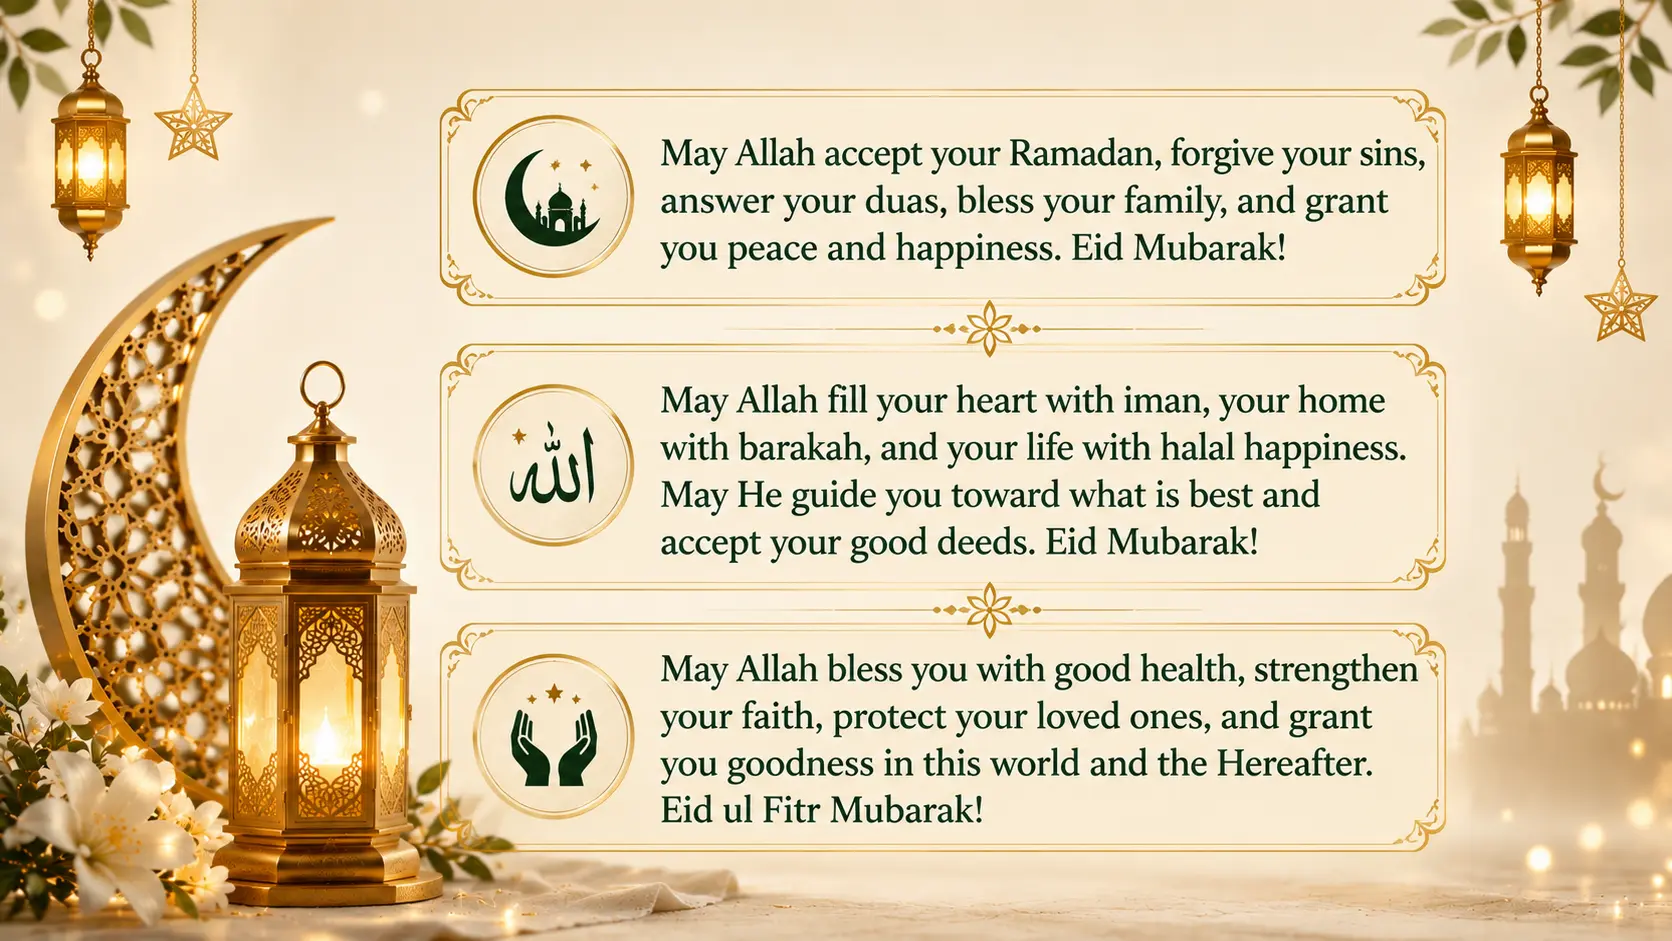 May Allah accept your Ramadan, forgive your sins,
answer your duas, bless your family, and grant
you peace and happiness. Eid Mubarak!
الله
May Allah fill your heart with iman, your home
with barakah, and your life with halal happiness.
May He guide you toward what is best and
accept your good deeds. Eid Mubarak!
May Allah bless you with good health, strengthen
your faith, protect your loved ones, and grant
you goodness in this world and the Hereafter.
Eid ul Fitr Mubarak!